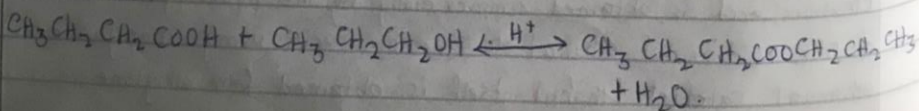 CH₃CH₂CH₂COOH + CH₃CH₂CH₂OH ⇌ H⁺ CH₃CH₂CH₂COOCH₂CH₂CH₃
+ H₂O.